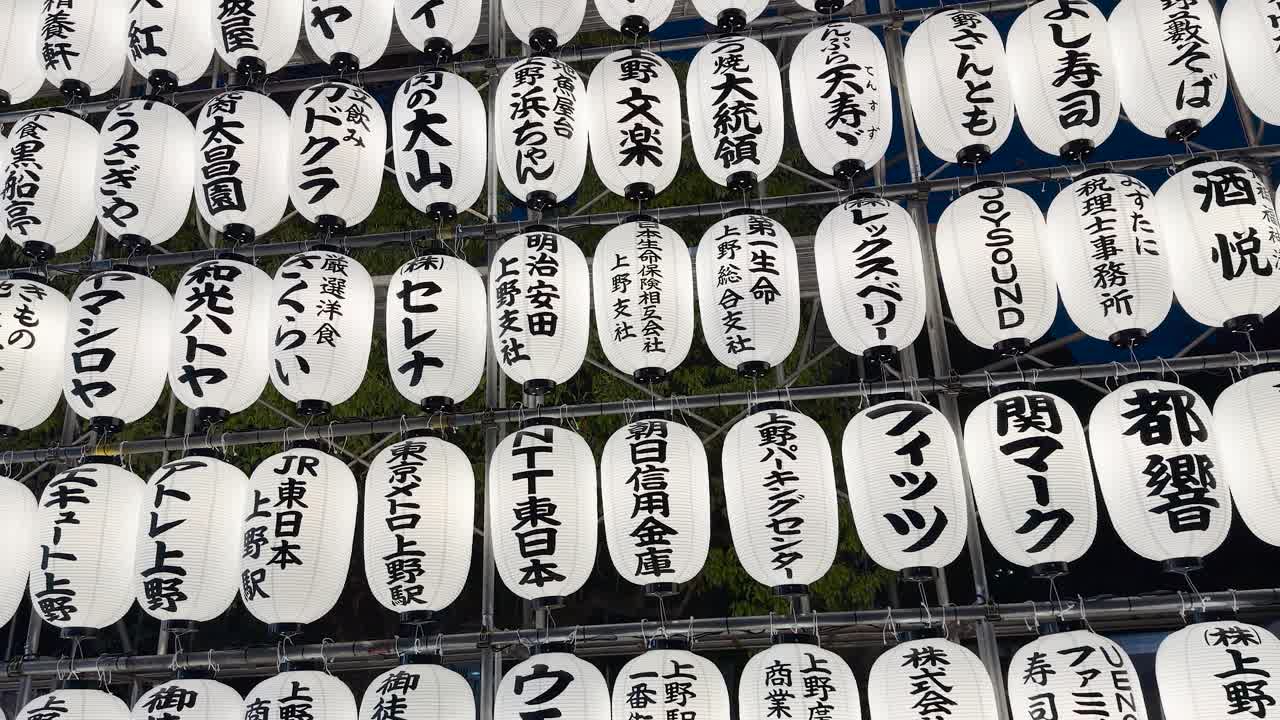 養軒
紅
坂屋
うさぎや
太昌園
立飲み
カドクラ
肉の大山
魚屋台
上野浜ちゃん
上野文楽
つ焼大統領
んぷら天寿ゞ
てんすず
上野さんとも
よし寿司
野藪そば
食黒船亭
きもの
ヤマシロヤ
和光ハトヤ
厳選洋食
さくらい
(株)セレナ
明治安田
上野支社
日本生命保険相互会社
上野支社
第一生命
上野総合支社
(株)レックス・ベリー
JOYSOUND
よずたに
税理士事務所
酒悦
エキュート上野
アトレ上野
JR東日本
上野駅
東京メトロ上野駅
NTT東日本
朝日信用金庫
上野パーキングセンター
フィッツ
関マーク
都響
上野
御徒
上野
商
御徒
ウエ
上野駅
一番街
上野広
商業
株式会
UENO
ファミ
寿司
(株)上野